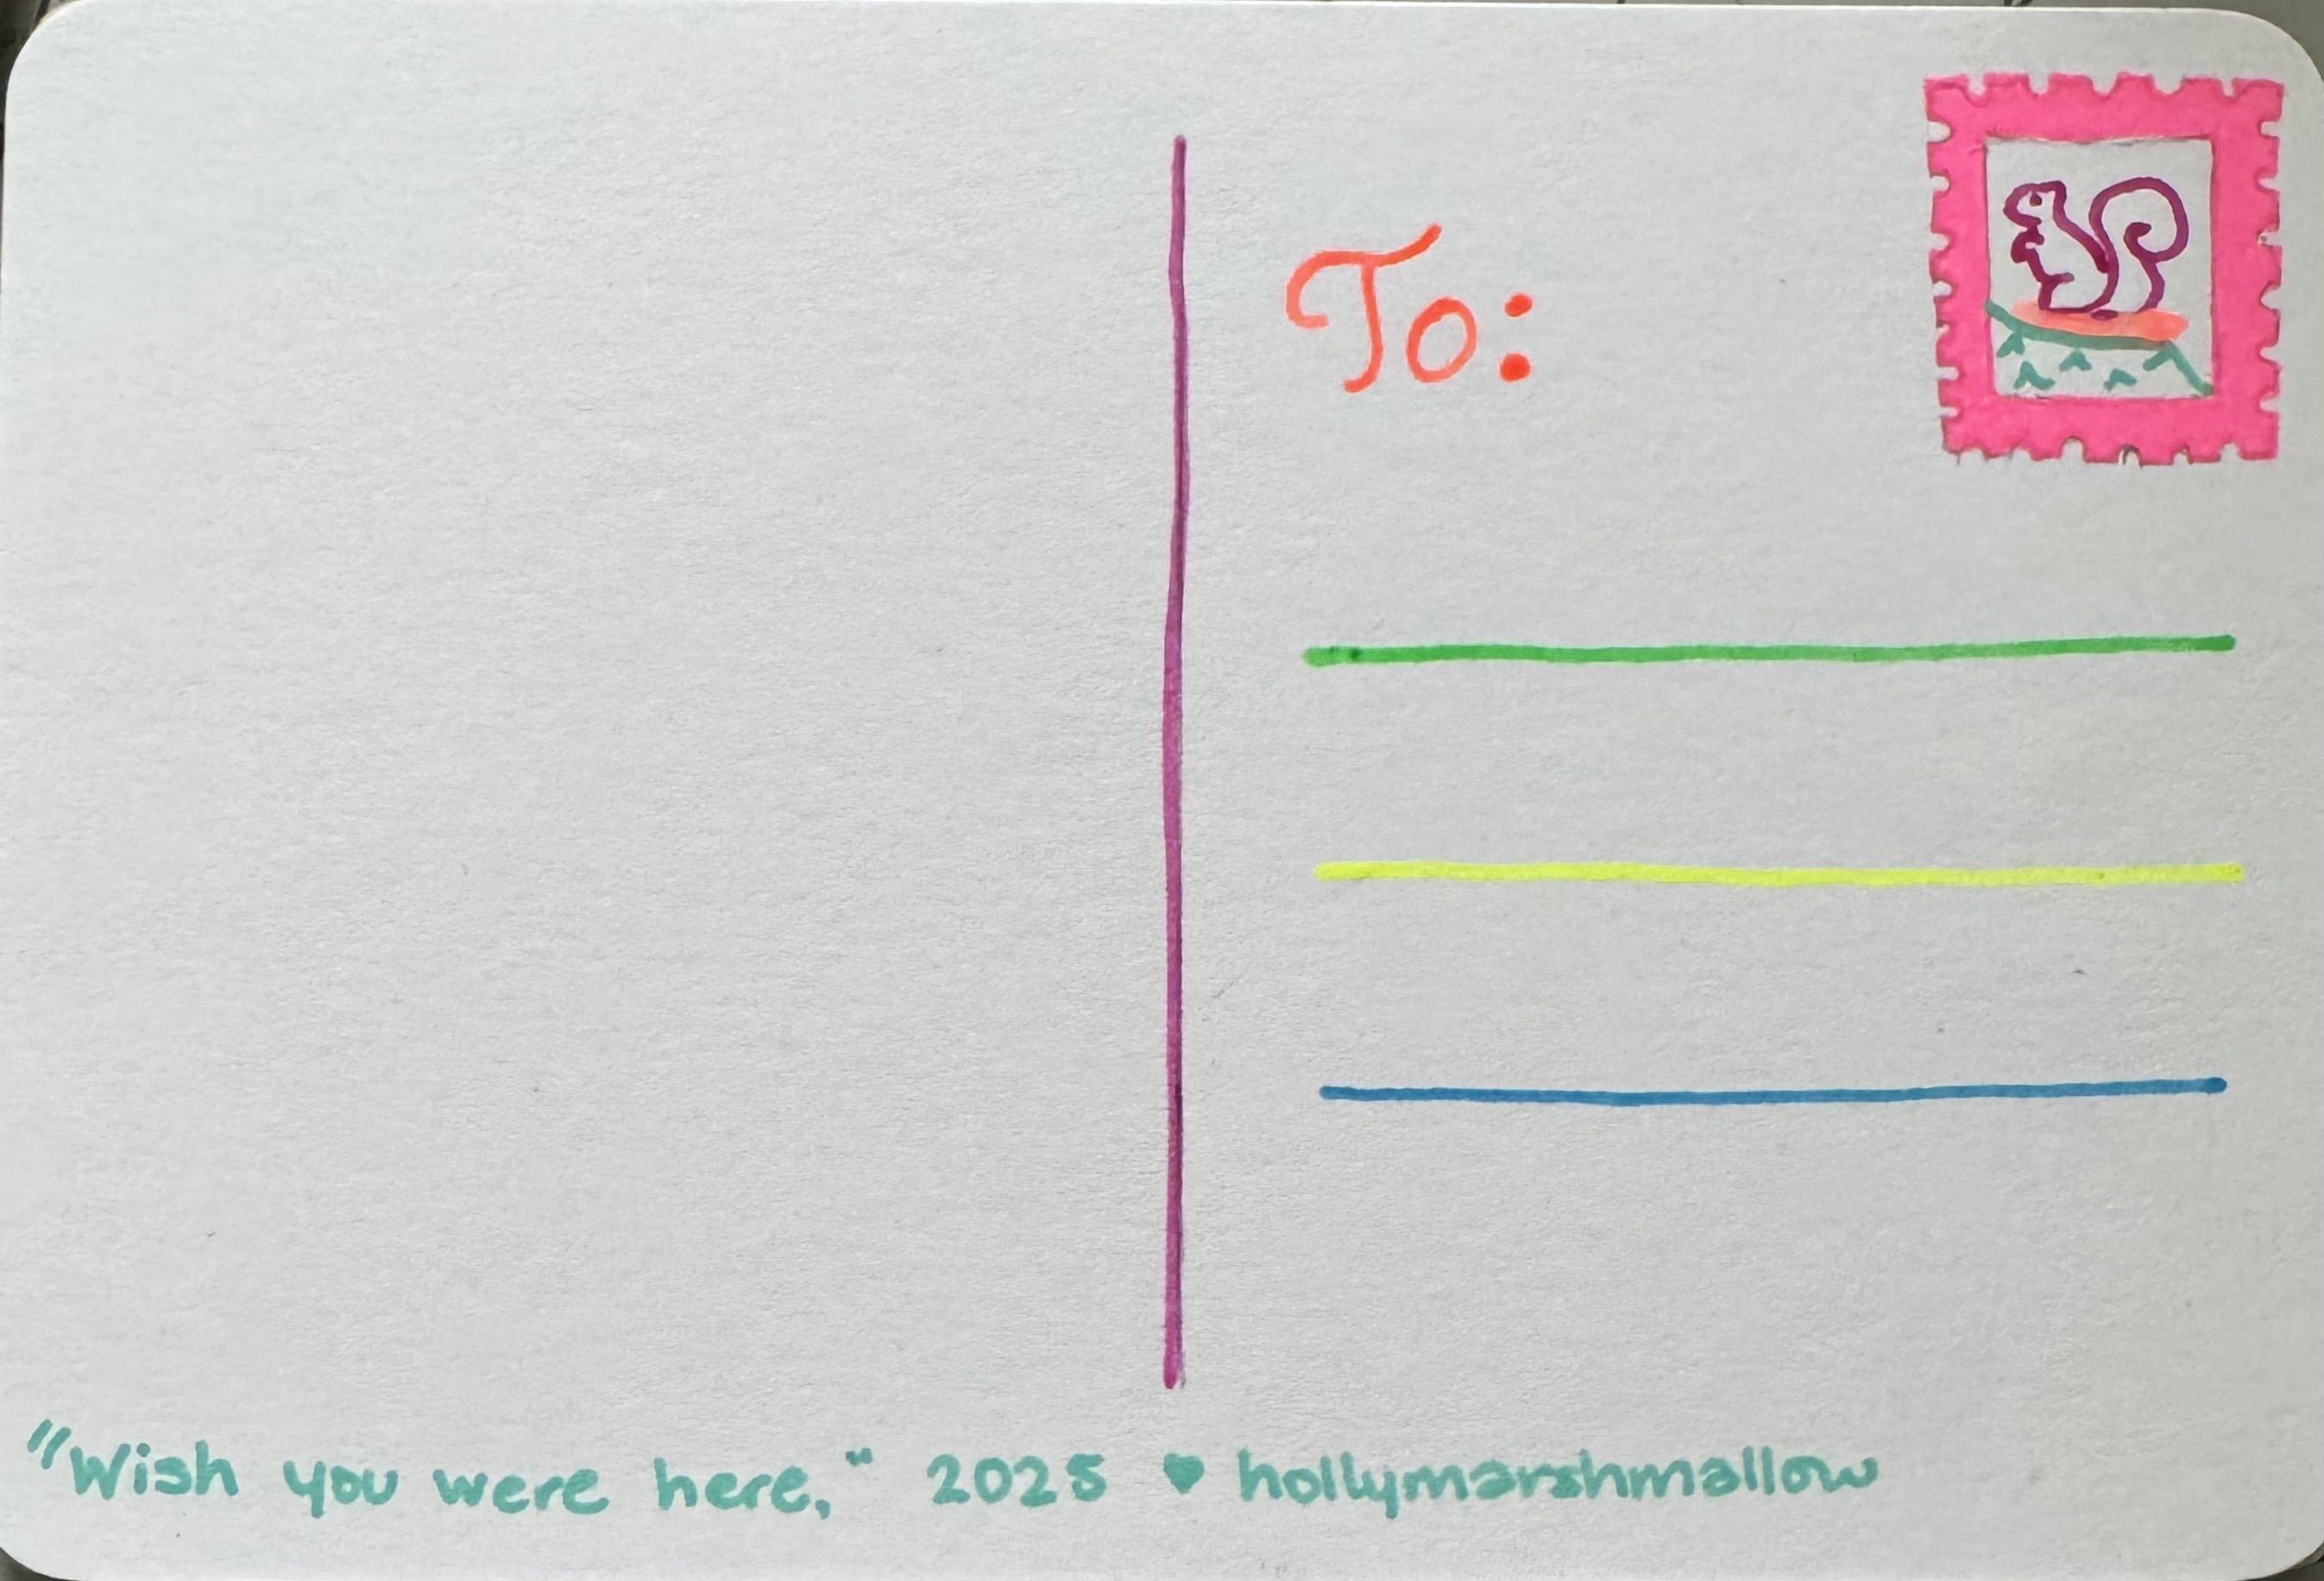 To:
"Wish you were here," 2025 ♥ hollymarshmallow